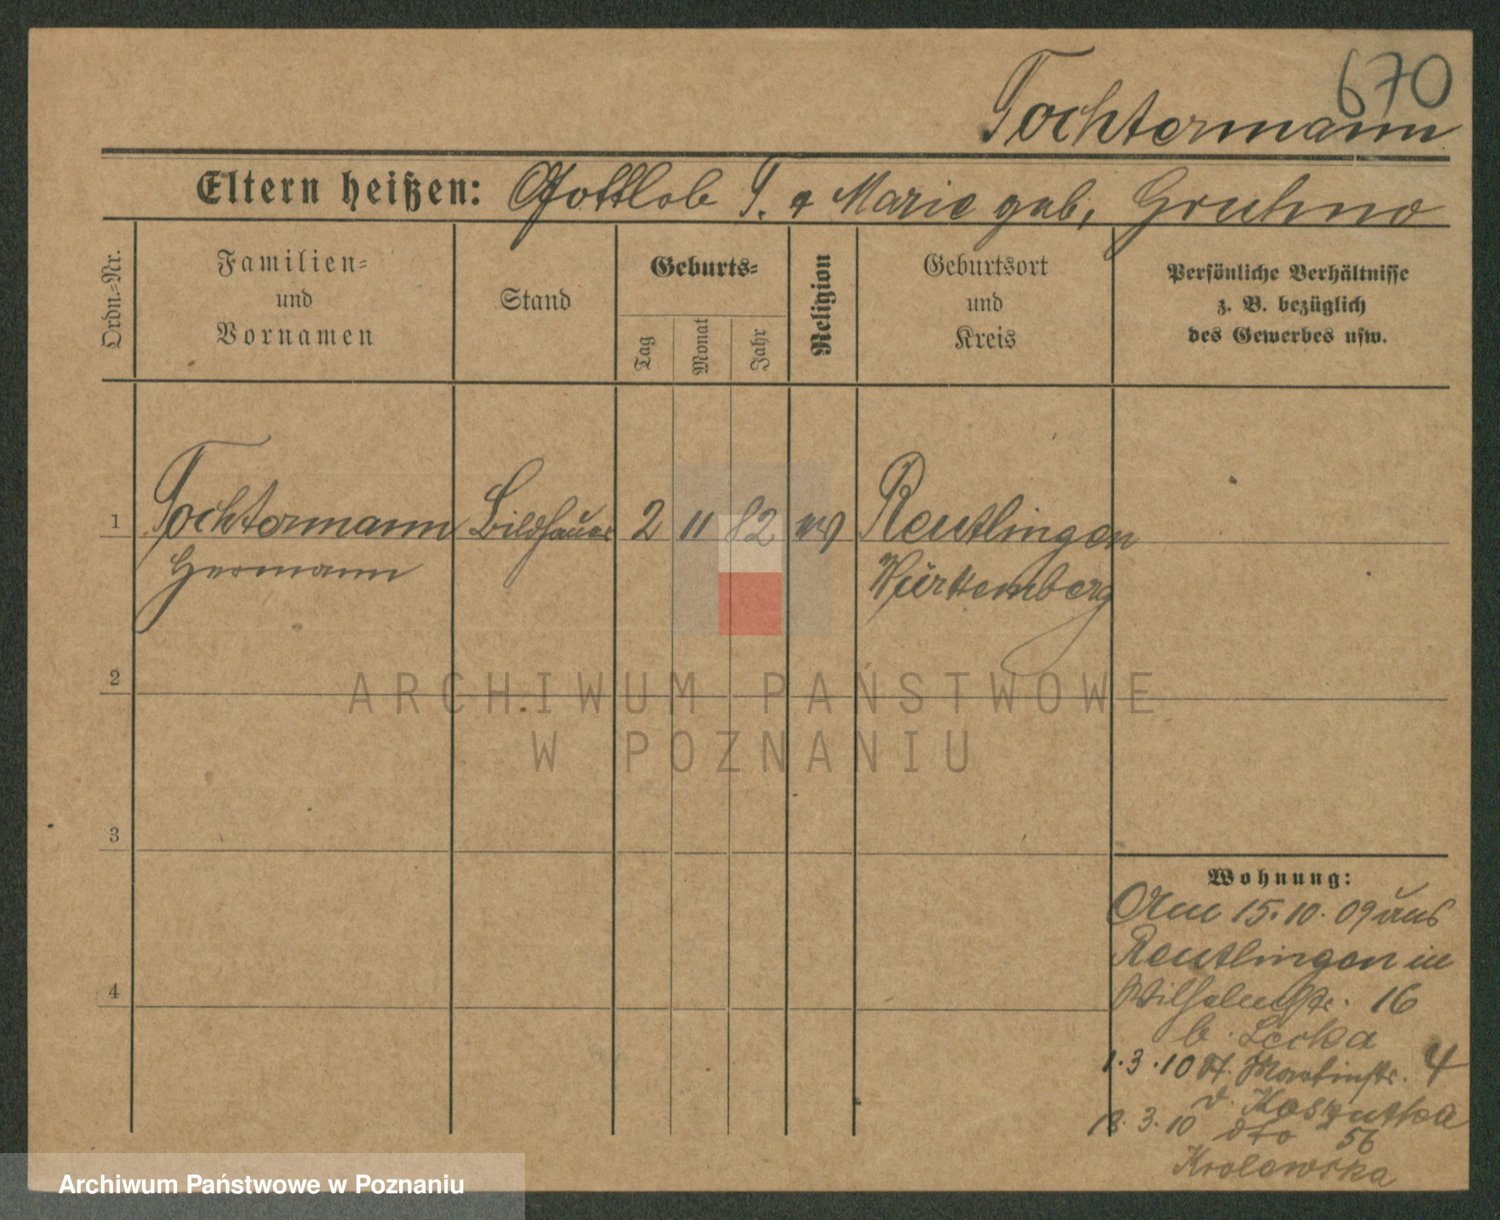 670
Tochtermann
Eltern heißen: Gottlob T. & Marie geb. Gruhno
Ordn.-Nr.
Familien-
und
Vornamen
Stand
Geburts-
Tag
Monat
Jahr
Religion
Geburtsort
und
Kreis
Persönliche Verhältnisse
z. B. bezüglich
des Gewerbes usw.
1 Tochtermann Bildhauer 2 11 82 ev Reutlingen
Hermann Würtemberg
2
3
4
Wohnung:
Am 15.10.09 aus
Reutlingen in
Wilhelmstr. 16
b. Lecka
1.3.10 St. Martinstr. 4
v. Koszutka
18.3.10 dto 56
Krolewska
ARCHIWUM PAŃSTWOWE
W POZNANIU
Archiwum Państwowe w Poznaniu